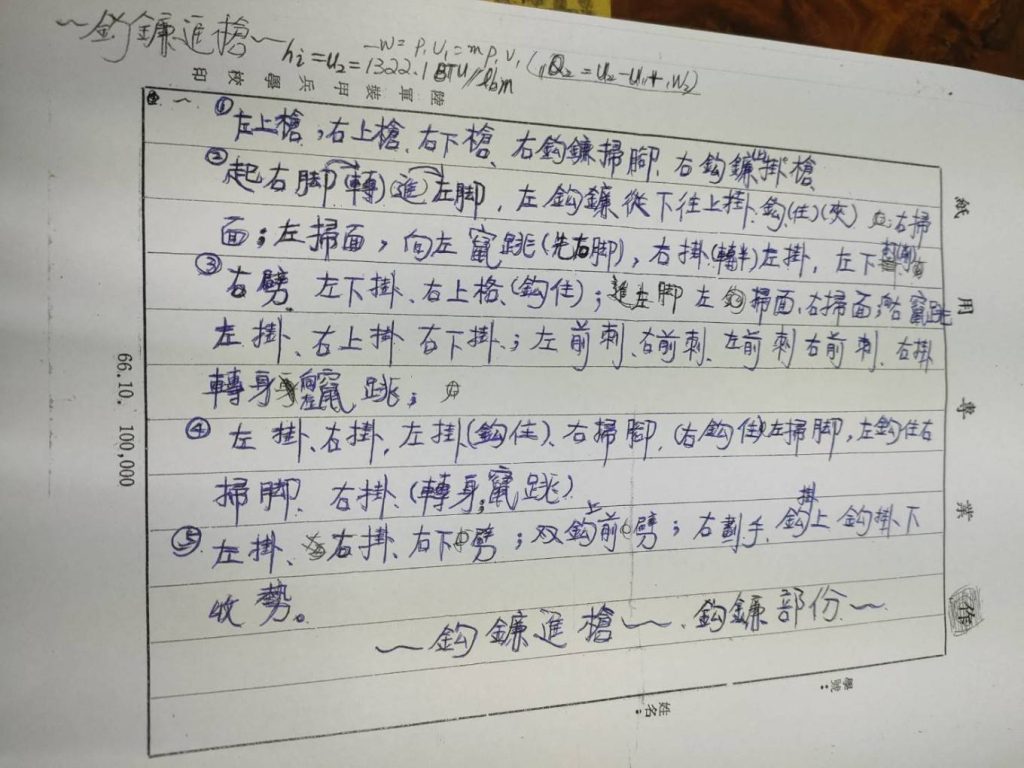 ～鈎鐮進槍～
hi=u2=1322.1 BTU/lbm
-W= P1U1=m P1V1 (1Q2=U2-U1+1W2)
陸軍裝甲兵學校印
一 ① 左上槍，右上槍、右下槍、右鈎鐮掃腳、右鈎鐮掛槍
② 起右脚(轉)(進)左脚，左鈎鐮從下往上掛、鈎(住)(夾) 右掃
面；左掃面，向左竄跳(先右脚)，右掛(轉半)左掛，左下
③ 右劈 左下掛、右上格、(鈎住)；進左脚 左鈎掃面、右掃面；右竄跳
左掛、右上掛 右下掛、；左前刺、右前刺、左前刺 右前刺、右掛
轉身向左竄跳；
④ 左掛、右掛，左掛(鈎住)、右掃脚，(右鈎住)左掃脚，左鈎住右
掃脚、右掛、(轉身；竄跳)
⑤ 左掛、右掛、右下劈；双鈎上前劈；右劃手、鈎掛上 鈎掛下
收勢。
～鈎鐮進槍～、鈎鐮部份～
紙用專業作
學號：
姓名：
66.10. 100,000